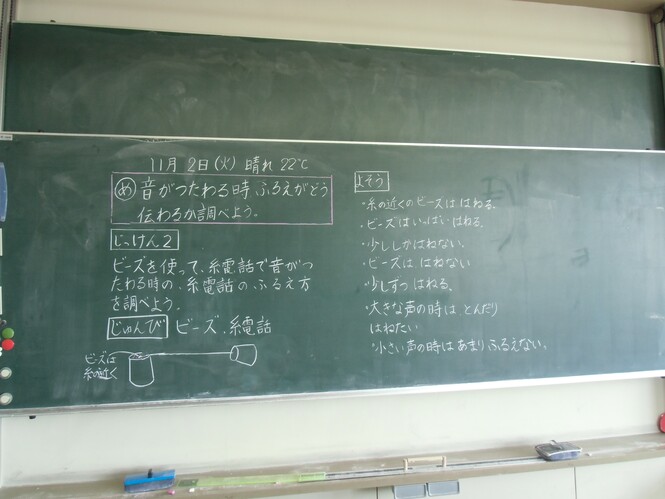 11月 2日(火) 晴れ 22℃
め 音がつたわる時 ふるえがどう
伝わるか調べよう。
じっけん2
ビーズを使って、糸電話で音がつ
たわる時の、糸電話のふるえ方
を調べよう。
じゅんび ビーズ、糸電話
ビーズは
糸の近く
よそう
・糸の近くのビーズは はねる。
・ビーズは いっぱい はねる。
・少ししかはねない。
・ビーズは はねない
・少しずつ はねる。
・大きな声の時は とんだり
はねたい
・小さい声の時は あまり ふるえない。